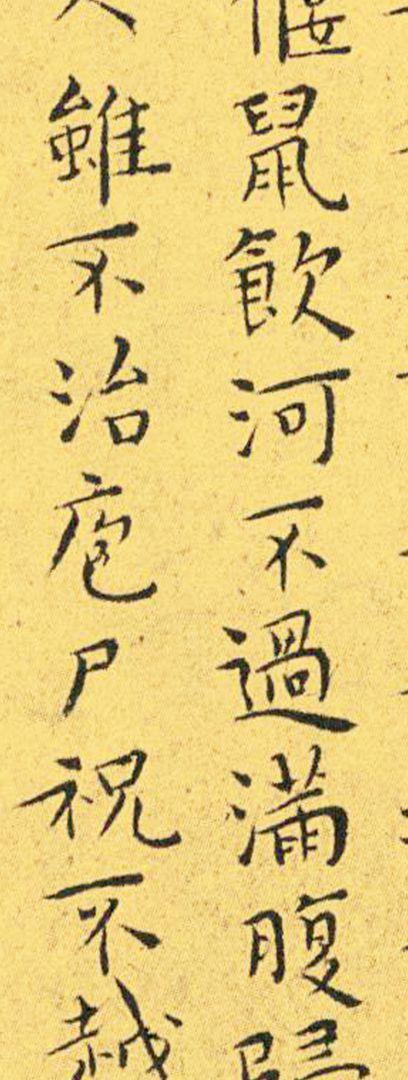 偃鼠飲河不過滿腹歸
人雖不治庖尸祝不越